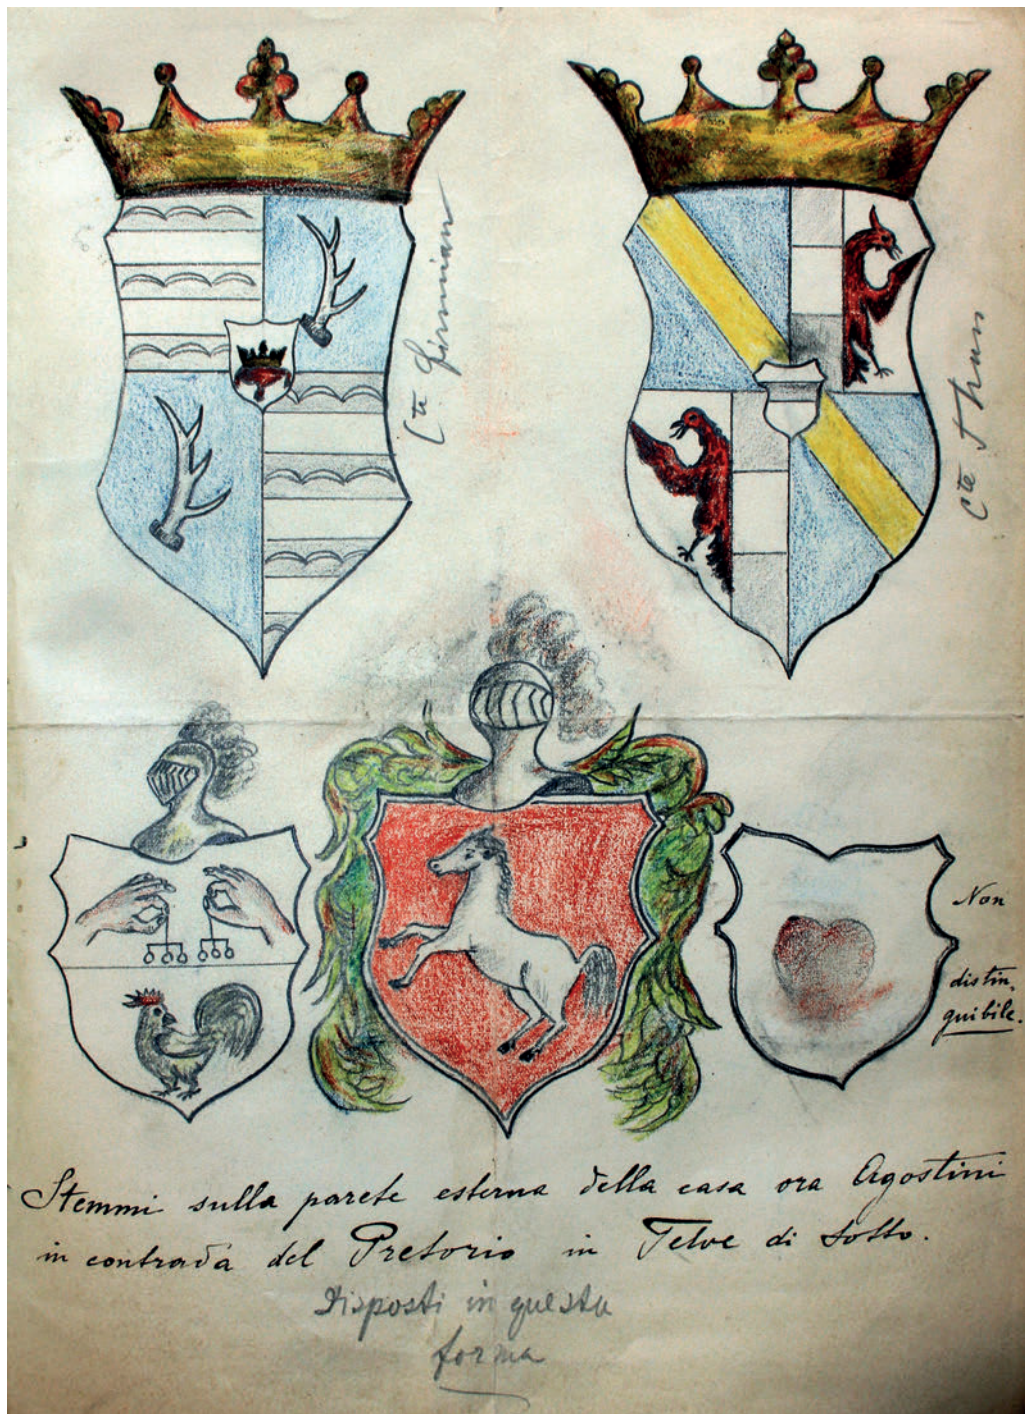 Cte Firmian
Cte Thun
Non
distin-
guibile.
Stemmi sulla parete esterna della casa ora Agostini
in contrada del Pretorio in Telve di sotto.
Disposti in questa
forma